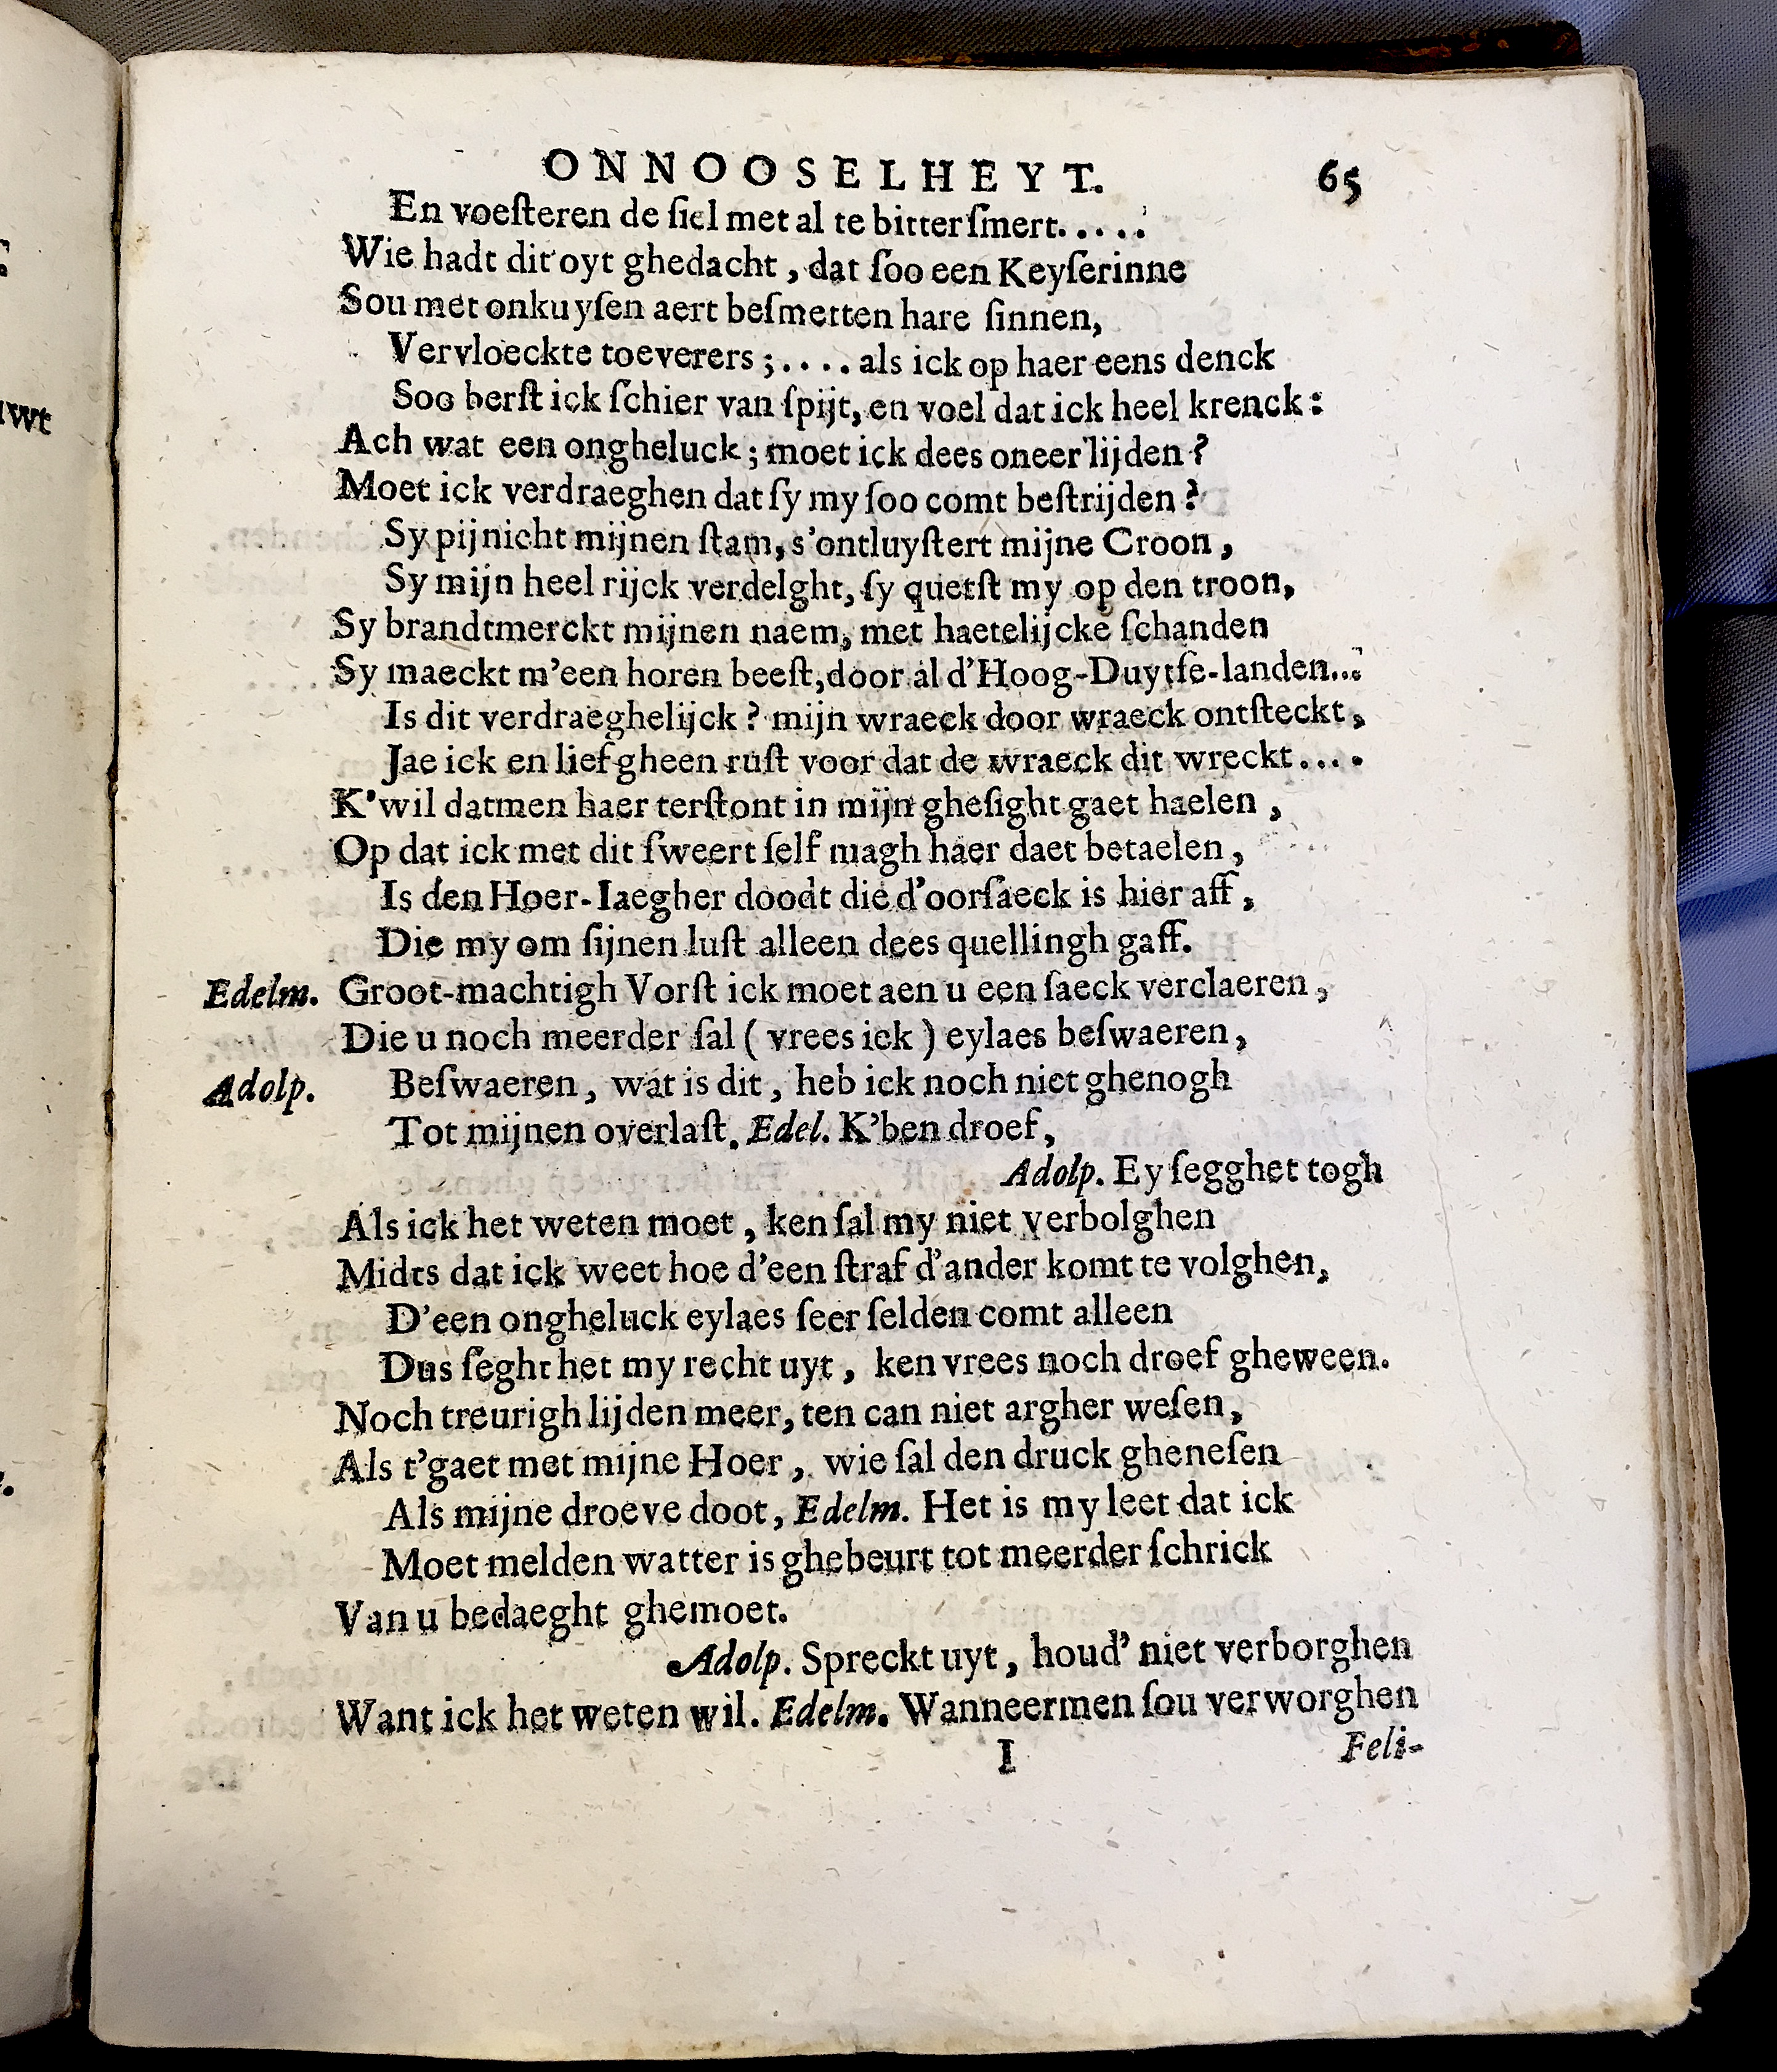 ONNOOSELHEYT. 65
En voeſteren de ſiel met al te bitter ſmert.....
Wie hadt dit oyt ghedacht, dat ſoo een Keyſerinne
Sou met onkuyſen aert beſmetten hare ſinnen,
Vervloeckte toeverers;.... als ick op haer eens denck
Soo berſt ick ſchier van ſpijt, en voel dat ick heel krenck:
Ach wat een ongheluck; moet ick dees oneer lijden?
Moet ick verdraeghen dat ſy my ſoo comt beſtrijden?
Sy pijnicht mijnen ſtam, s'ontluyſtert mijne Croon,
Sy mijn heel rijck verdelght, ſy quetſt my op den troon,
Sy brandtmerckt mijnen naem, met haetelijcke ſchanden
Sy maeckt m'een horen beeſt, door al d'Hoog-Duytſe-landen...
Is dit verdraeghelijck? mijn wraeck door wraeck ontſteckt,
Jae ick en lief gheen ruſt voor dat de wraeck dit wreckt....
K'wil datmen haer terſtont in mijn gheſight gaet haelen,
Op dat ick met dit ſweert ſelf magh haer daet betaelen,
Is den Hoer-Iaegher doodt die d'oorſaeck is hier aff,
Die my om ſijnen luſt alleen dees quellingh gaff.
Edelm. Groot-machtigh Vorſt ick moet aen u een ſaeck verclaeren,
Die u noch meerder ſal ( vrees ick ) eylaes beſwaeren,
Adolp. Beſwaeren, wat is dit, heb ick noch niet ghenogh
Tot mijnen overlaſt. Edel. K'ben droef,
Adolp. Ey ſegghet togh
Als ick het weten moet, ken ſal my niet verbolghen
Midts dat ick weet hoe d'een ſtraf d'ander komt te volghen,
D'een ongheluck eylaes ſeer ſelden comt alleen
Dus ſeght het my recht uyt, ken vrees noch droef gheween.
Noch treurigh lijden meer, ten can niet argher weſen,
Als t'gaet met mijne Hoer, wie ſal den druck gheneſen
Als mijne droeve doot, Edelm. Het is my leet dat ick
Moet melden watter is ghebeurt tot meerder ſchrick
Van u bedaeght ghemoet.
Adolp. Spreckt uyt, houd' niet verborghen
Want ick het weten wil. Edelm. Wanneermen ſou verworghen
I Feli-